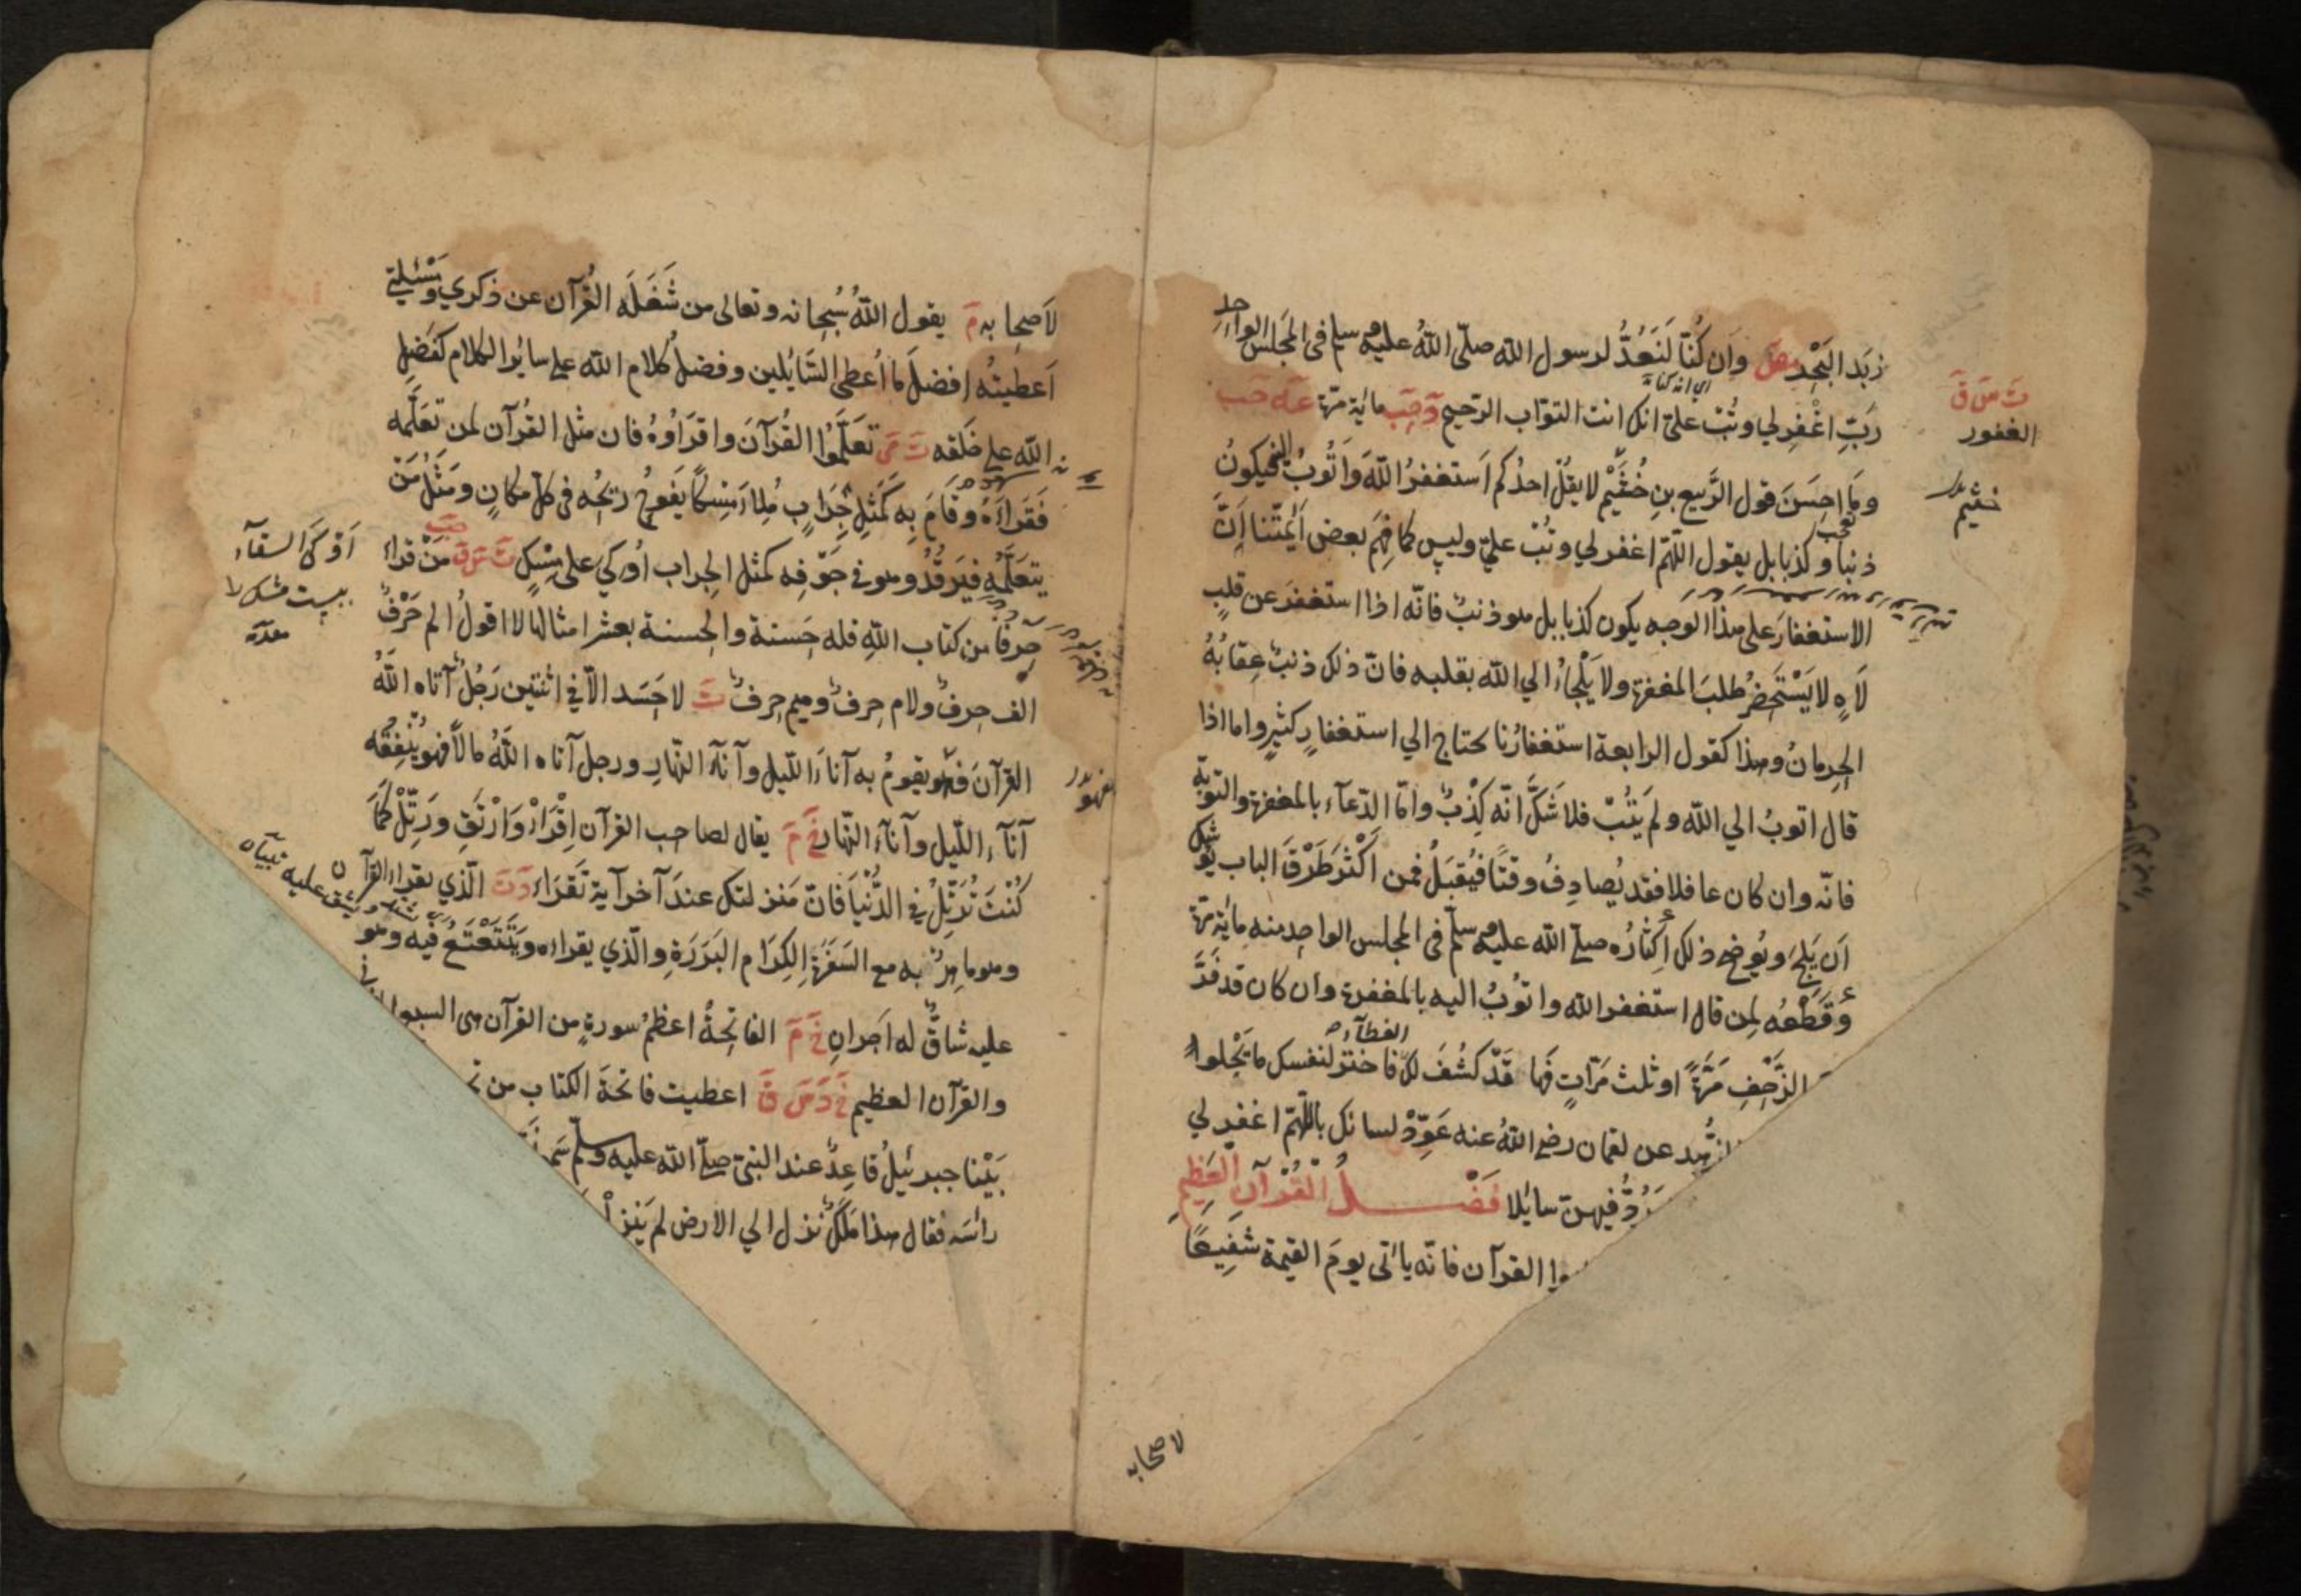 زبَد البَحْر مص وان كُنّا لَنَعُدُّ لرسول الله صلّى اللهُ عليه وسلم فى المجلس الواحِد
رَبِّ اغْفِرلي وتُبْ عليّ انك انت التوّاب الرّحيم مائة مرّة
ت س ق
الغفور
وما احسَنَ قول الرَّبيع بنِ خُثَيْم لا يقُلْ احدُكم اَستغفرُ اللهَ وَاَتُوبُ اليه فيكونُ
خثيم
ذنبا وكذبا بل يقول اللّهمّ اغفرلي وتُبْ عليّ وليس كما فهِمَ بعض اَئِمّتنا اَنَّ
الاستغفارَ على هذا الوجه يكون كذبا بل هو ذنبٌ فانّه اذا استغفرَ عن قلبٍ
لاَهٍ لا يَسْتَحْضِرُ طلبَ المغفرة ولا يَلْجَاءُ الي الله بقلبه فانّ ذلك ذنبٌ عِقابُهُ
الحِرمانُ وهذا كقول الرابعة استغفارُنا يحتاج الي استغفارٍ كثيرٍ واما اذا
قال اتوبُ الي الله ولم يَتُبْ فلا شَكَّ انّه كِذْبٌ وامّا الدّعآء بالمغفرة والتوبة
فانّه وان كان عافلا فقد يُصادِفُ وقتًا فيُقبَلُ فمن اَكْثَرَ طَرْقَ الباب يُوشِكُ
اَن يَلِجَ ويُوضِح ذلك اِكْثارُه صلّى الله عليه وسلّم فى المجلس الواحِد منه مائة مرّة
وقَطْعُه لمن قال استغفر الله واتوبُ اليه بالمغفرة وان كان قد فَرَّ
الزَّحْفِ مَرَّةً او ثلث مرّاتٍ فَها قَدْ كُشِفَ لك الغطآء فاختر لنفسك ما يَحْلوا
الزُّهد عن لقمان رضي اللهُ عنه عَوِّدْ لسانك باللّهمّ اغفرلي
يَرُدُّ فيهن سائلا فَضْلُ الْقُرْآنِ الْعَظِيمِ
القرآن فانّه يأتى يومَ القيمة شفيعًا
لاصحابه
لاَصحابه م يقول اللهُ سُبحانه وتعالى من شَغَلَه القُرآن عن ذكري ومَسْئَلتي
اَعطيتُه افضلَ ما اُعطى السّائلين وفضلُ كلام الله على سائر الكلام كفَضْلِ
الله على خلقه ت مى تعَلَّموا القُرآنَ واقرَاوُهُ فان مثل القُرآن لمن تعَلَّمه
فَقَراءَهُ وقَامَ بِه كمَثَلِ جِرَابٍ مُلِاَ مِسْكًا يفوحُ ريحُه فى كلّ مكانٍ ومَثَلُ مَنْ
يتعَلَّمه فيَرقُدُ وهو في جَوْفِه كمثل الجِراب اُوكي على مِسْكٍ ت س ق حب مَنْ قراء
حَرفًا من كتاب اللهِ فله حَسنة والحسنة بعشر امثالها لا اقولُ الم حَرْفٌ
الف حرفٌ ولام حرفٌ وميم حرفٌ ت لاحَسَد الاّ في اثنتين رَجُلٌ آتاه اللهُ
القرآنَ فهو يقومُ به آناءَ اللّيل وآنآء النّهارِ ورجل آتاه اللهُ مالاً فهو يُنفِقُه
آنآء اللّيل وآنآء النّهار خ م يقال لصاحب القرآن اِقْرَاْ وَارْتَقِ ورَتِّلْ كمَا
كُنتَ تُرَتِّلُ في الدُّنْيا فانّ مَنزلتك عندَ آخر آية تَقرَاء د ت الّذي يقراء القرآن
وهو ماهِرٌ به مع السَّفَرَةِ الكِرَام البَرَرَةِ والّذي يقراءه ويَتَتَعْتَعُ فيه وهو
عليه شاقٌّ له اَجرانِ خ م الفاتحةُ اعظمُ سورةٍ من القرآن هى السبع
والقرآن العظيم خ د س ق اعطيت فاتحةَ الكتاب من
بَيْنا جبرئيلُ قاعِدٌ عند النبيّ صلّى الله عليه وسلّم سَمعَ
رأسَه فقال هذا مَلَكٌ نزل الي الارض لم ينزل